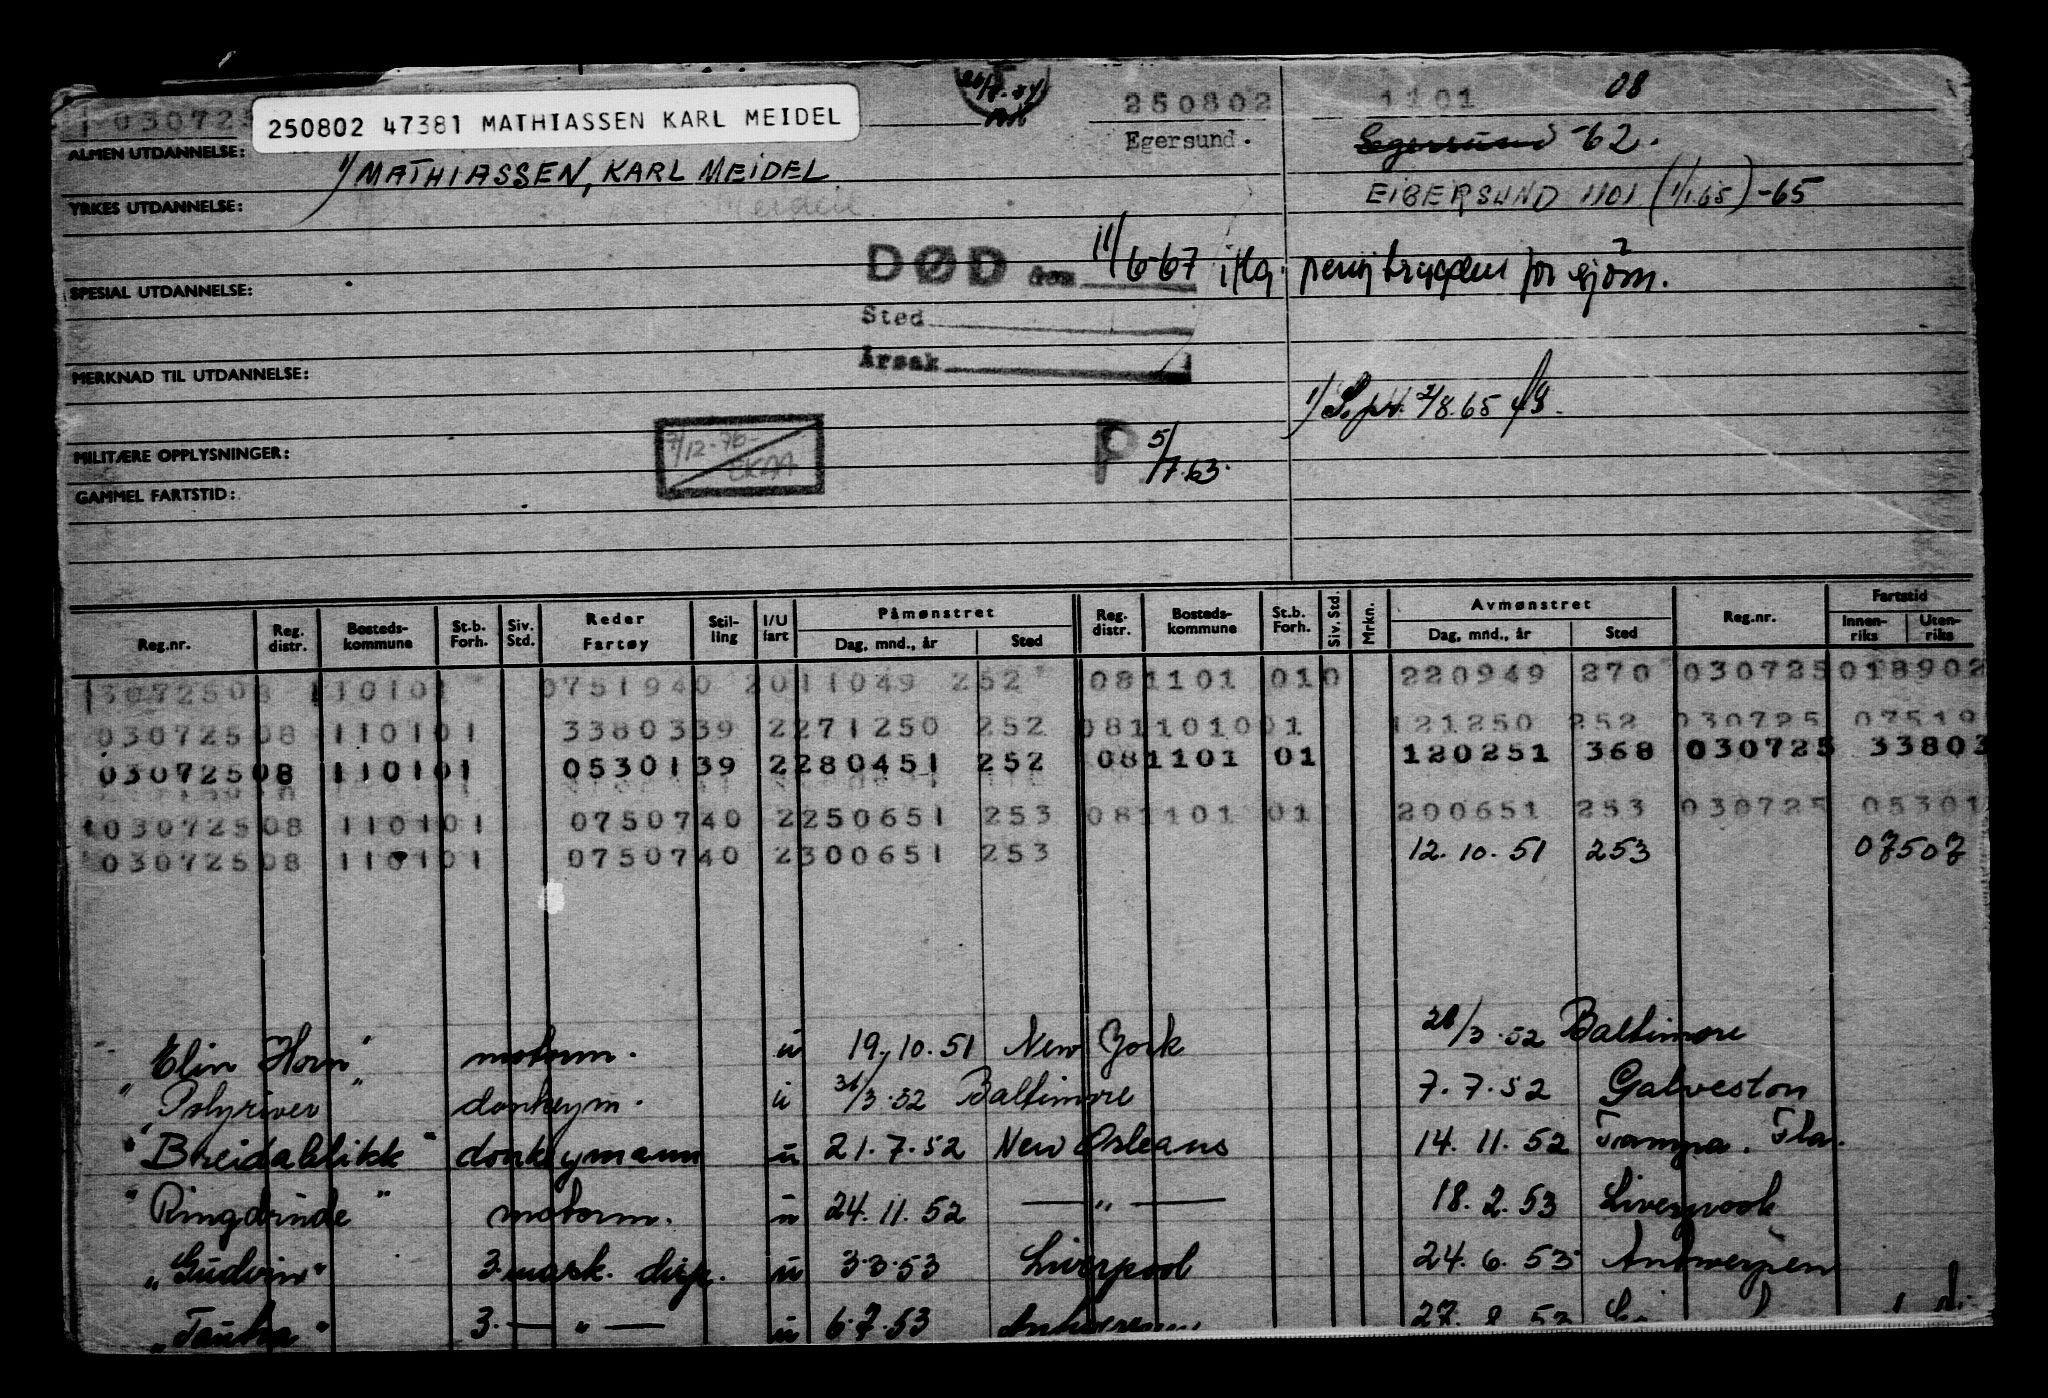 08
030725
250802 47381 MATHIASSEN KARL MEIDEL
250802
1101
Egersund.
Egersund -62.
ALMEN UTDANNELSE:
1/ MATHIASSEN, KARL MEIDEL
EIGERSUND 1101 (1/1.65) -65
YRKES UTDANNELSE:
DØD den 11/6-67 iflg. pensjtrygden for sjøm.
SPESIAL UTDANNELSE:
Sted
Årsak
MERKNAD TIL UTDANNELSE:
2/8.65
7/12-76
P 5/7.63.
MILITÆRE OPPLYSNINGER:
GAMMEL FARTSTID:
Reg.nr. Reg. distr. Bosteds-kommune St.b. Forh. Siv. Std. Reder Fartøy Stil-ling I/U fart Påmønstret Dag, mnd., år Sted Reg. distr. Bosteds-kommune St.b. Forh. Siv. Std. Mrkn. Avmønstret Dag, mnd., år Sted Reg.nr. Fartstid Innen-riks Uten-riks
3072508 110101 0751940 2011049 252 081101 010 220949 270 030725 018902
03072508 110101 3380339 2271250 252 081101001 121250 252 030725 07519
03072508 110101 0530139 2280451 252 081101 01 120251 368 030725 33803
03072508 110101 0750740 2250651 253 081101 01 200651 253 030725 05301
03072508 110101 0750740 2300651 253 12.10.51 253 07507
"Elin Horn" motorm. u 19.10.51 New York 28/3.52 Baltimore
"Polyriver" donkeym. u 31/3.52 Baltimore 7.7.52 Galveston
"Breidablikk" donkeymann u 21.7.52 New Orleans 14.11.52 Tampa. Fla.
"Ringdrude" motorm. u 24.11.52 — " — 18.2.53 Liverpool
"Gudvin" 3. mask. disp. u 3.3.53 Liverpool 24.6.53 Antwerpen
"Tautra" 3. — " — u 6.7.53 Antwerpen 27.8.53